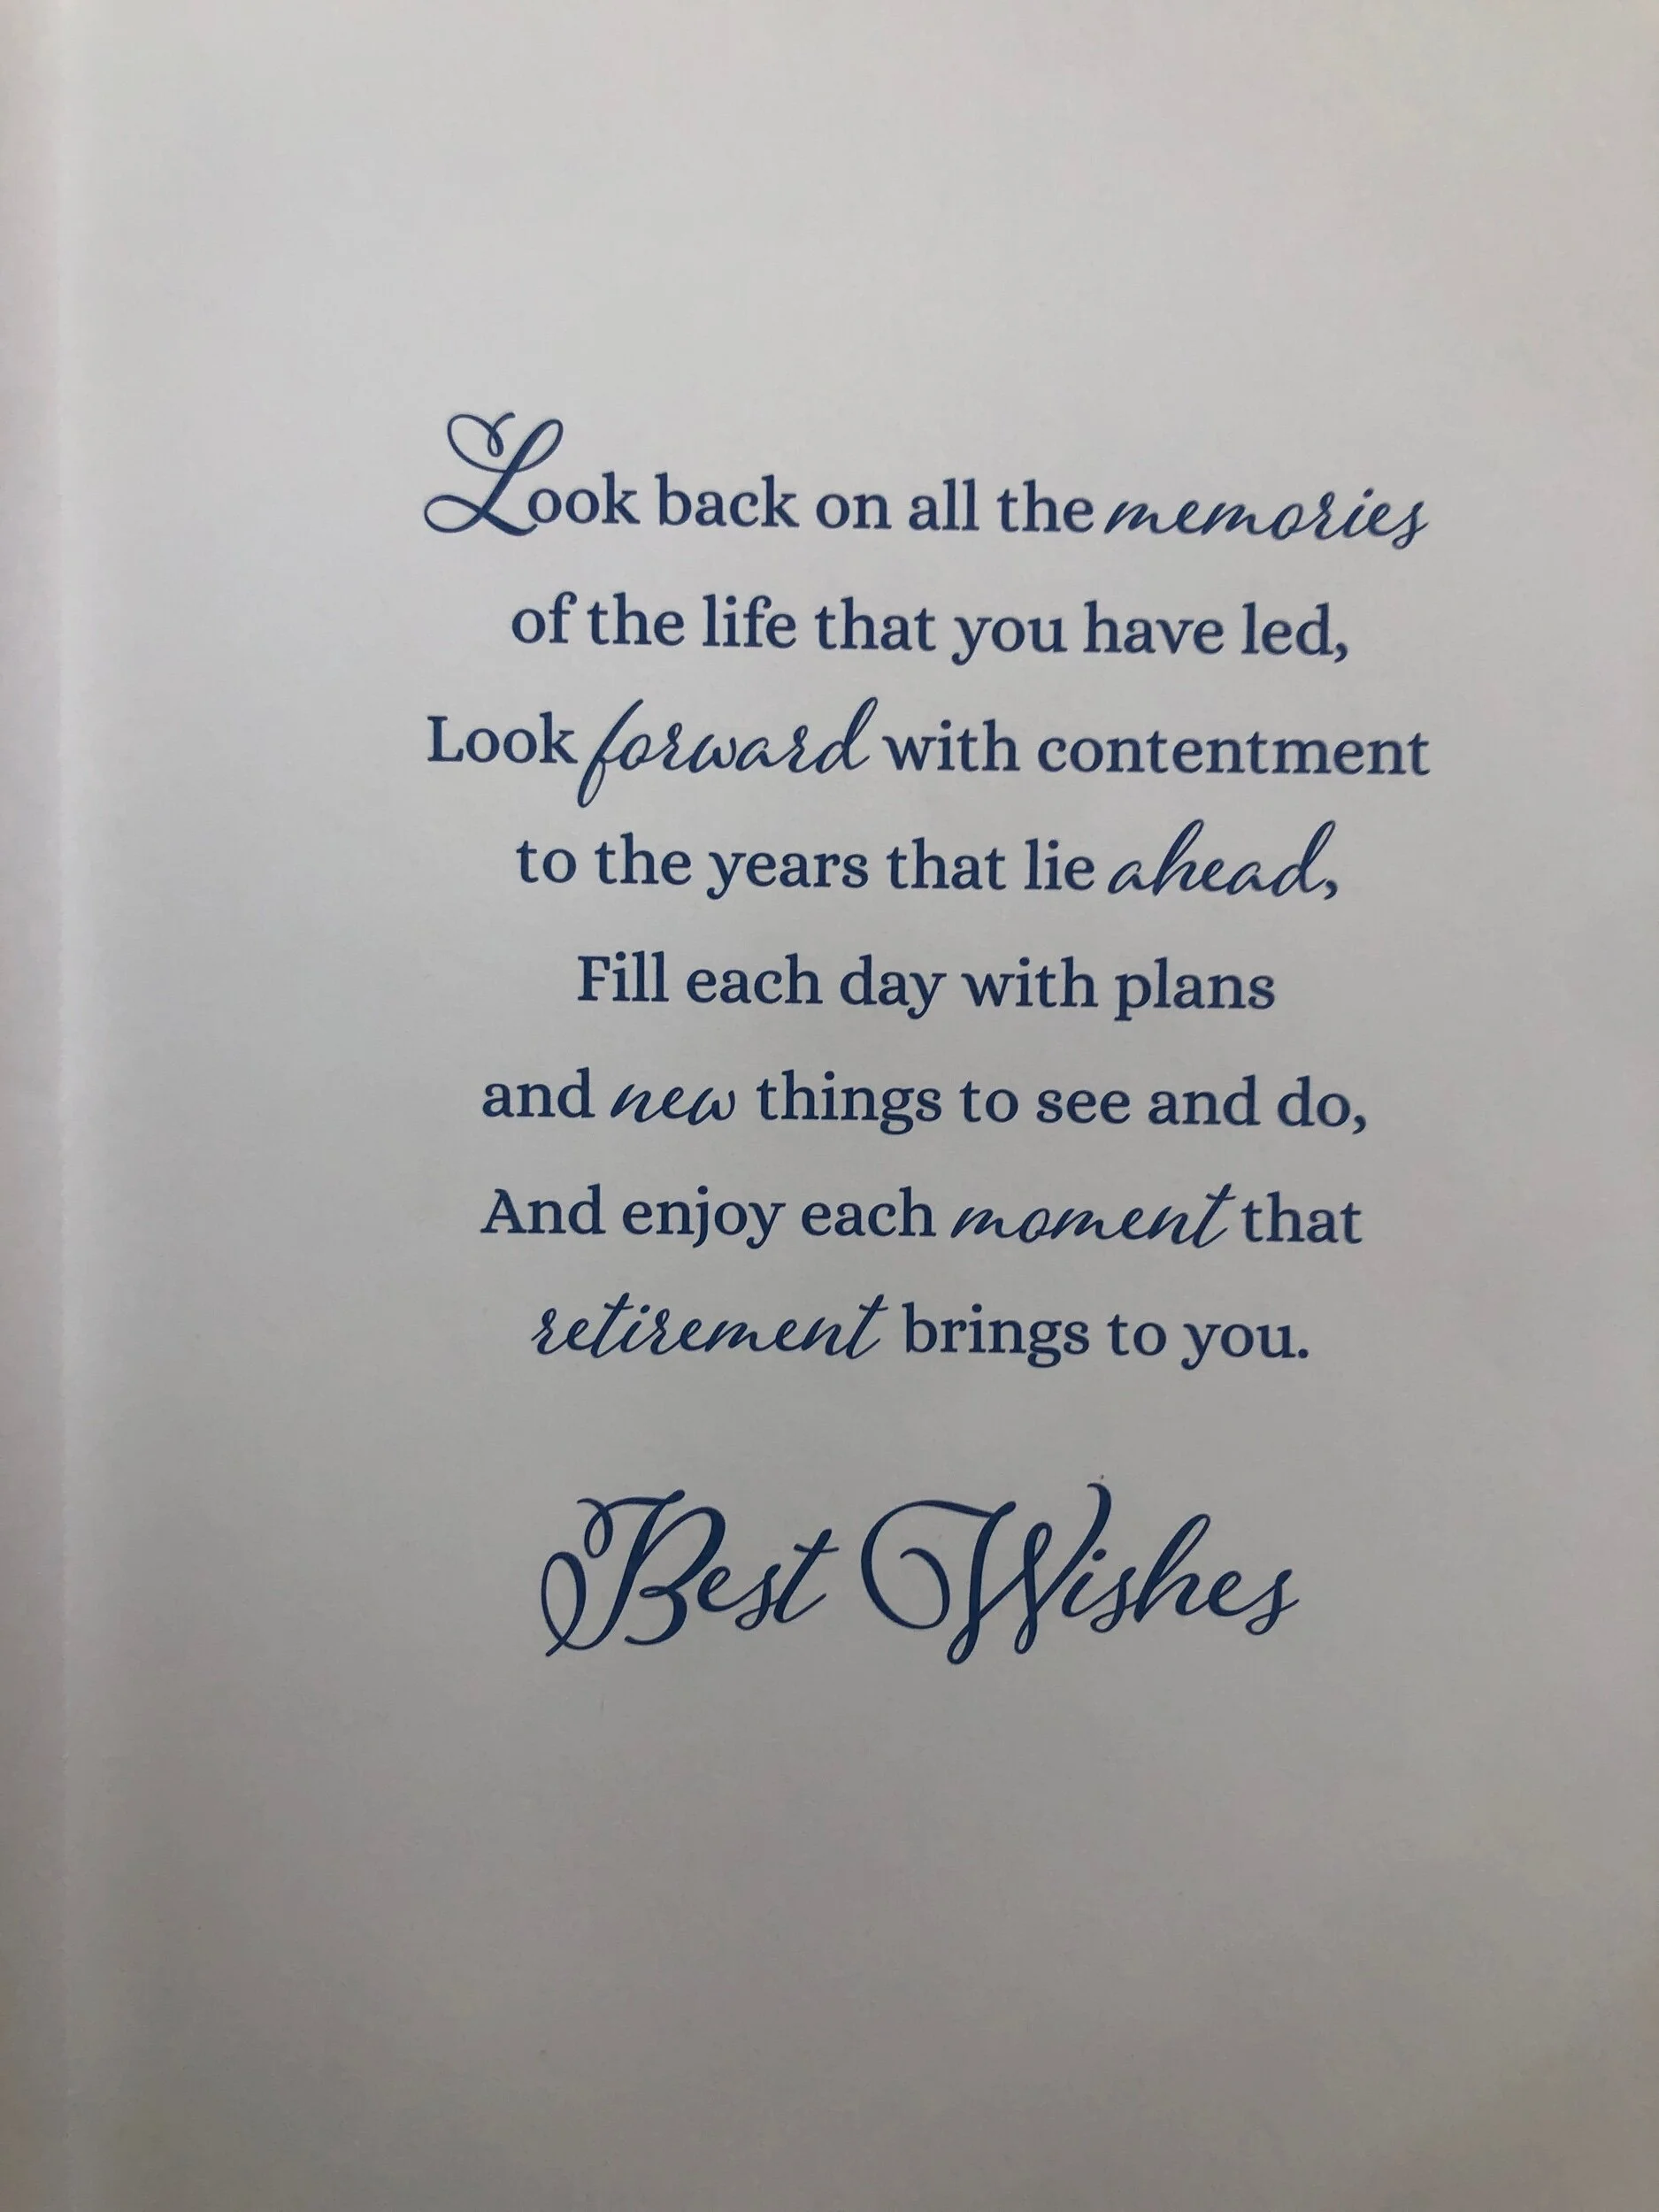 Look back on all the memories
of the life that you have led,
Look forward with contentment
to the years that lie ahead,
Fill each day with plans
and new things to see and do,
And enjoy each moment that
retirement brings to you.
Best Wishes